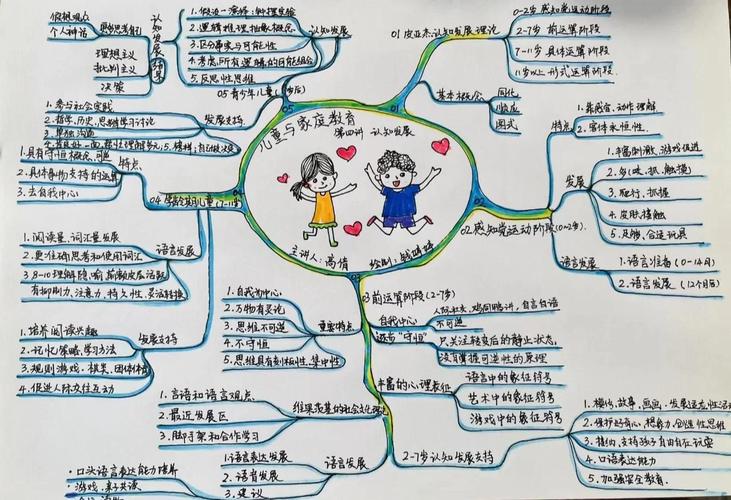 儿童与家庭教育
第四讲 认知发展
主讲人:高倩
绘制:
01 皮亚杰认知发展理论
0-2岁 感知觉运动阶段
2-7岁 前运算阶段
7-11岁 具体运算阶段
11岁以上 形式运算阶段.
基本概念
同化
顺应
图式
02 感知觉运动阶段(0-2岁).
特点
1.靠感官.动作理解
2.客体永恒性.
发展
1.丰富刺激、游戏促进
2.多吸、抓、触摸
3.爬行、抓握
4.皮肤接触
5.足够、合适玩具
语言发展
1.语言准备(0-1岁)
2.语言发展(12个月后)
03 前运算阶段(2-7岁)
自我中心
不可逆
还有“守恒”
只关注转变后的静止状态,
没有掌握可逆性的原理
丰富的心理表征
语言中的象征符号
艺术中的象征符号
游戏中的象征符号
2-7岁认知发展支持
4.口语表达能力
5.加强安全教育.
重要特点
1.自我为中心
2.万物有灵论
3.思维不可逆
4.不守恒
5.思维具有刻板性、集中性
维果茨基的社会文化理论
1.言语和语言观点
2.最近发展区
3.脚手架和合作学习
语言发展
1.语言表达发展
2.语音发展
3.建议
·口头语言表达能力培养
·游戏、亲子共读
04 学龄期儿童(7-11岁)
特点
1.具有守恒概念、可逆
2.具体事物支持的运算
3.去自我中心
语言发展
1.阅读量、词汇量发展
2.更准确思考和使用词汇
有抑制力、注意力、持久性、灵活转换
发展支持
1.培养阅读兴趣
2.记忆策略.学习方法
3.规则游戏、棋类、团体体育
4.促进人际交往互动
05 青少年儿童
认知发展
1.假设—演绎推理
2.逻辑推理.抽象概念
3.区分事实与可能性
4.考虑所有逻辑的可能组合
5.反思性思维
认知发展
假想观众
个人神话
理想主义
批判主义
决策
发展支持
1.参与社会实践
2.哲学、历史、思辨学习讨论
3.单独沟通